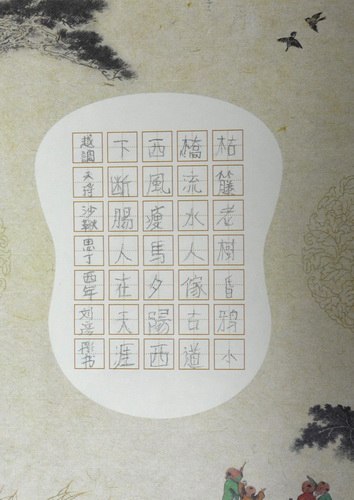 枯籐老樹昏鴉小
橋流水人傢古道
西風瘦馬夕陽西
下断腸人在天涯
越調天淨沙秋思丁酉年刘彦彤书